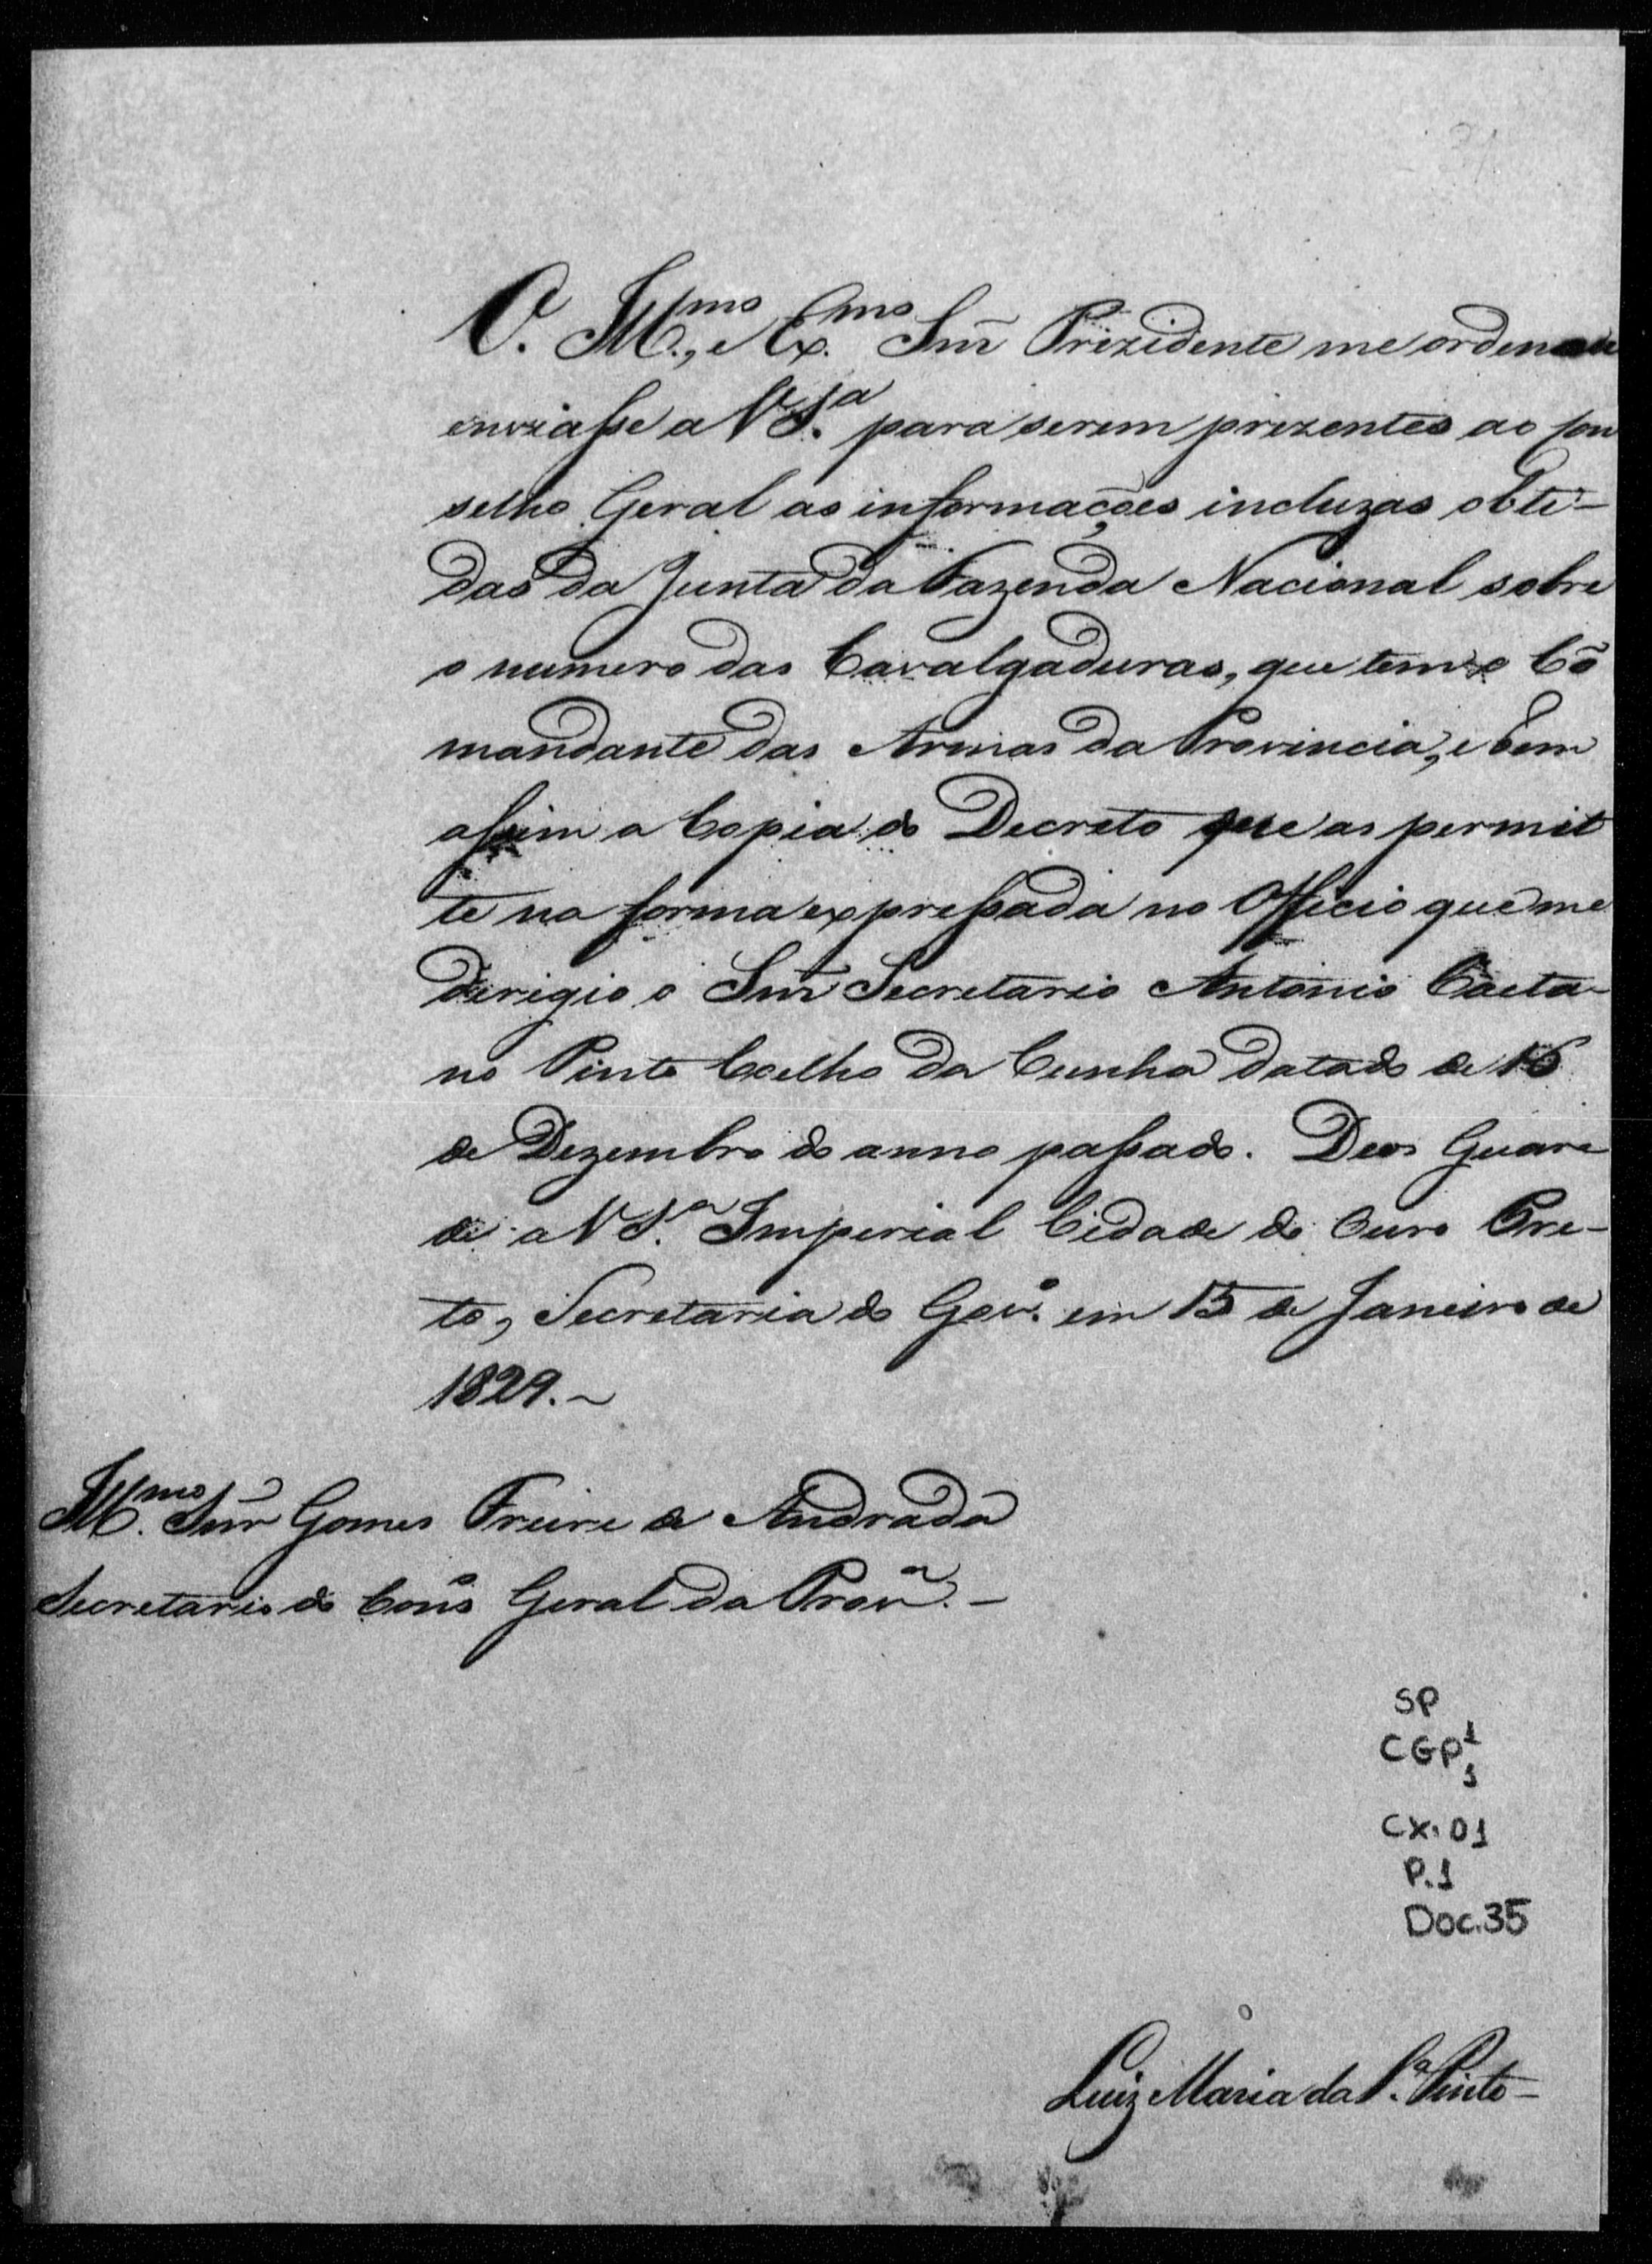 O Ill.mo, e Ex.mo Snr̃ Prezidente me ordena
enviasse a V S.a para serem prezentes ao Con
selho Geral as informações incluzas obti-
das da Junta da Fazenda Nacional sobre
o numero das Cavalgaduras, que tem o Cõ
mandante das Armas da Provincia, e bem
assim a Copia do Decreto que as permit
te na forma expressada no Officio que me
dirigio o Snr̃ Secretario Antonio Caeta-
no Pinto Coelho da Cunha datado de 16
de Dezembro do anno passado. Deos Guar-
de a V S.a Imperial Cidade do Ouro Pre-
to, Secretaria do Gov.o em 15 de Janeiro de
1829.~
Ill.mo Snr̃ Gomes Freire de Andrada
Secretario do Cons.o Geral da Prov.a -
SP
CGP 1
1
CX. 01
P.1
Doc.35
Luiz Maria da S.a Pinto-